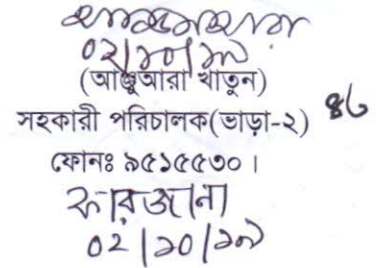 ০২/১০/১৯
(আঞ্জুআরা খাতুন)
সহকারী পরিচালক(ভাড়া-২)
ফোনঃ ৯৫১৫৫৩০।
ফারজানা
০২/১০/১৯